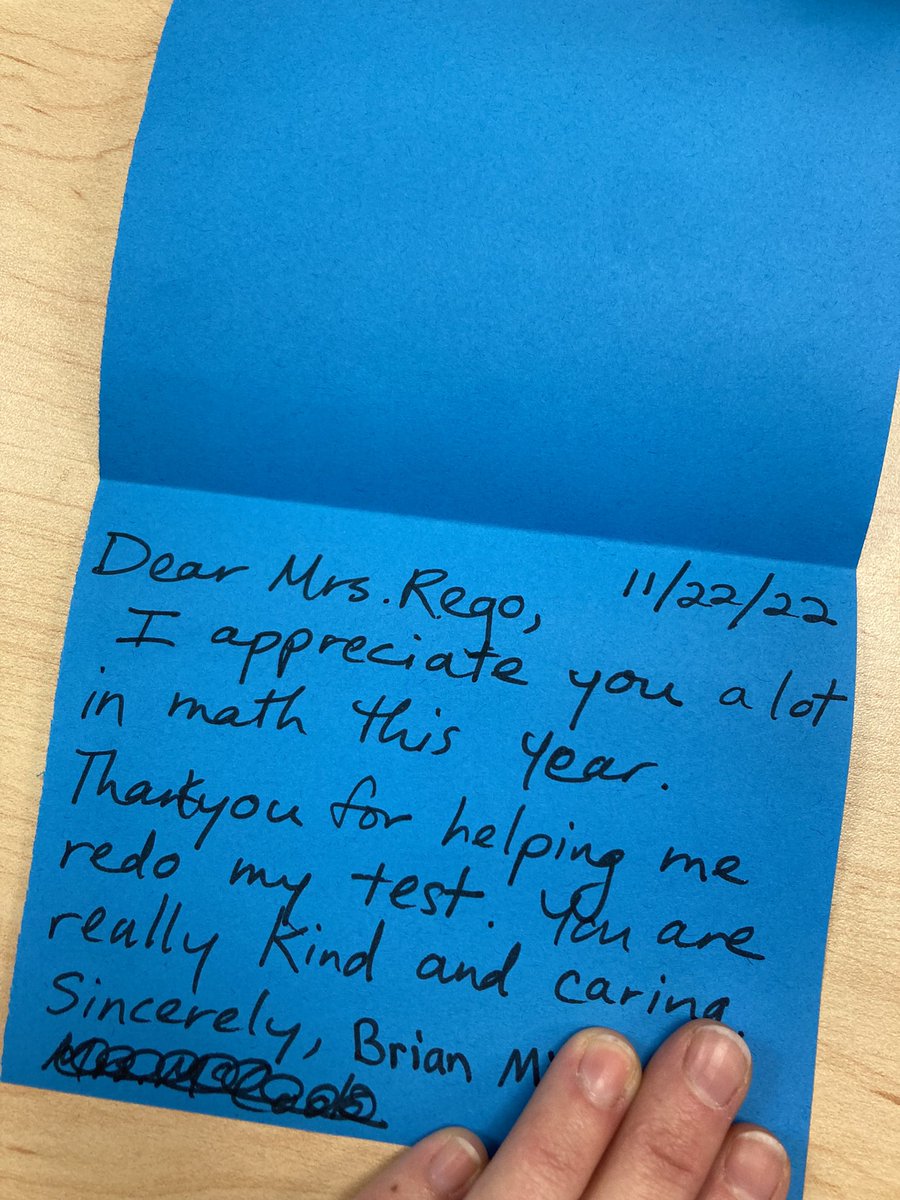 Dear Mrs. Rego, 11/22/22
I appreciate you a lot
in math this year.
Thankyou for helping me
redo my test. You are
really kind and caring.
Sincerely, Brian